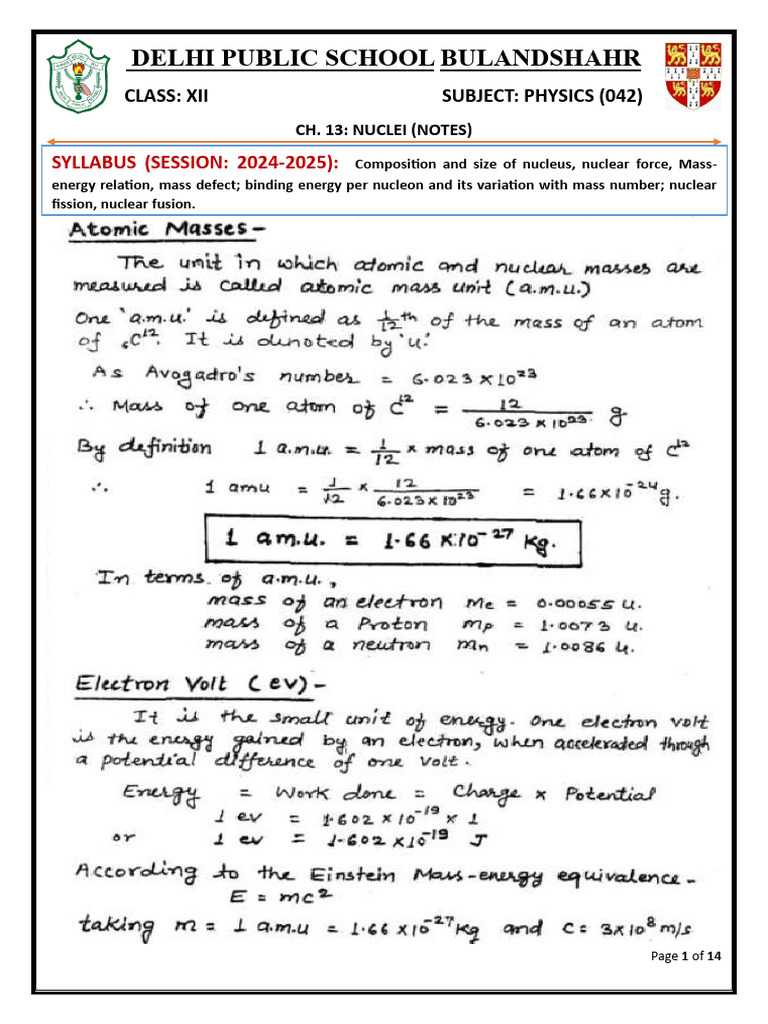 DELHI PUBLIC SCHOOL BULANDSHAHR
CLASS: XII SUBJECT: PHYSICS (042)
CH. 13: NUCLEI (NOTES)
SYLLABUS (SESSION: 2024-2025): Composition and size of nucleus, nuclear force, Mass-
energy relation, mass defect; binding energy per nucleon and its variation with mass number; nuclear
fission, nuclear fusion.
Atomic Masses -
The unit in which atomic and nuclear masses are
measured is called atomic mass unit (a.m.u.)
One 'a.m.u.' is defined as 1/12 th of the mass of an atom
of ₆C¹². It is denoted by 'u.'
As Avogadro's number = 6.023 × 10²³
∴ Mass of one atom of C¹² = 12 / 6.023 × 10²³ g
By definition 1 a.m.u. = 1/12 × mass of one atom of C¹²
∴ 1 amu = 1/12 × 12 / 6.023 × 10²³ = 1.66 × 10⁻²⁴ g.
1 a.m.u. = 1.66 × 10⁻²⁷ kg.
In terms of a.m.u.,
mass of an electron Me = 0.00055 u.
mass of a Proton mp = 1.0073 u.
mass of a neutron mn = 1.0086 u.
Electron Volt (ev) -
It is the small unit of energy. One electron volt
is the energy gained by an electron, when accelerated through
a potential difference of one volt.
Energy = Work done = Charge × Potential
1 ev = 1.602 × 10⁻¹⁹ × 1
or 1 ev = 1.602 × 10⁻¹⁹ J
According to the Einstein Mass-energy equivalence -
E = mc²
taking m = 1 a.m.u = 1.66 × 10⁻²⁷ kg and c = 3×10⁸ m/s
Page 1 of 14